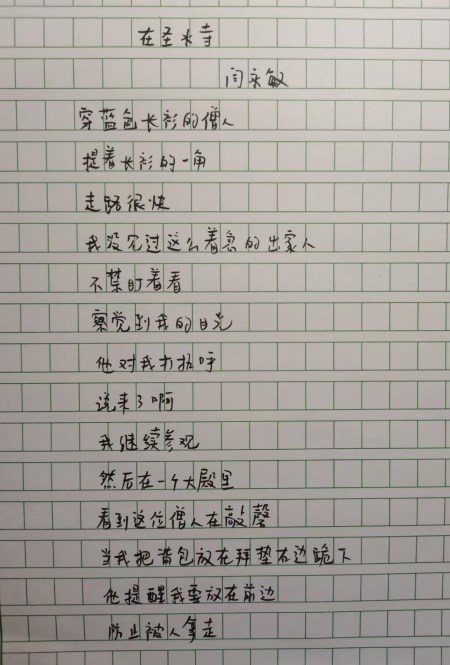 在圣水寺
闫永敏
穿蓝色长衫的僧人
提着长衫的一角
走路很快
我没见过这么着急的出家人
不禁盯着看
察觉到我的目光
他对我打招呼
说来了啊
我继续参观
然后在一个大殿里
看到这位僧人在敲磬
当我把背包放在拜垫右边跪下
他提醒我要放在前边
防止被人拿走